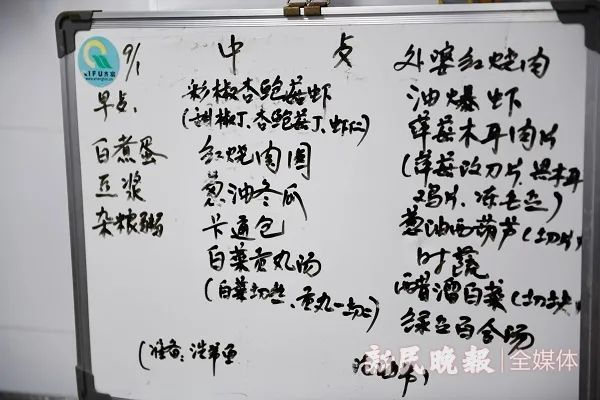 9/1
早点:
白煮蛋
豆浆
杂粮粥
中 点
彩椒杏鲍菇虾
(甜椒丁、杏鲍菇丁、虾仁)
红烧肉圆
葱油冬瓜
卡通包
白菜贡丸汤
(白菜切丝、贡丸一切二)
(准备:
外婆红烧肉
油爆虾
蘑菇木耳肉片
(蘑菇改刀片、黑木耳
鸡片、冻毛豆)
葱油西葫芦(切片)
时蔬
醋溜白菜(切块)
绿豆百合汤
新民晚报|全媒体